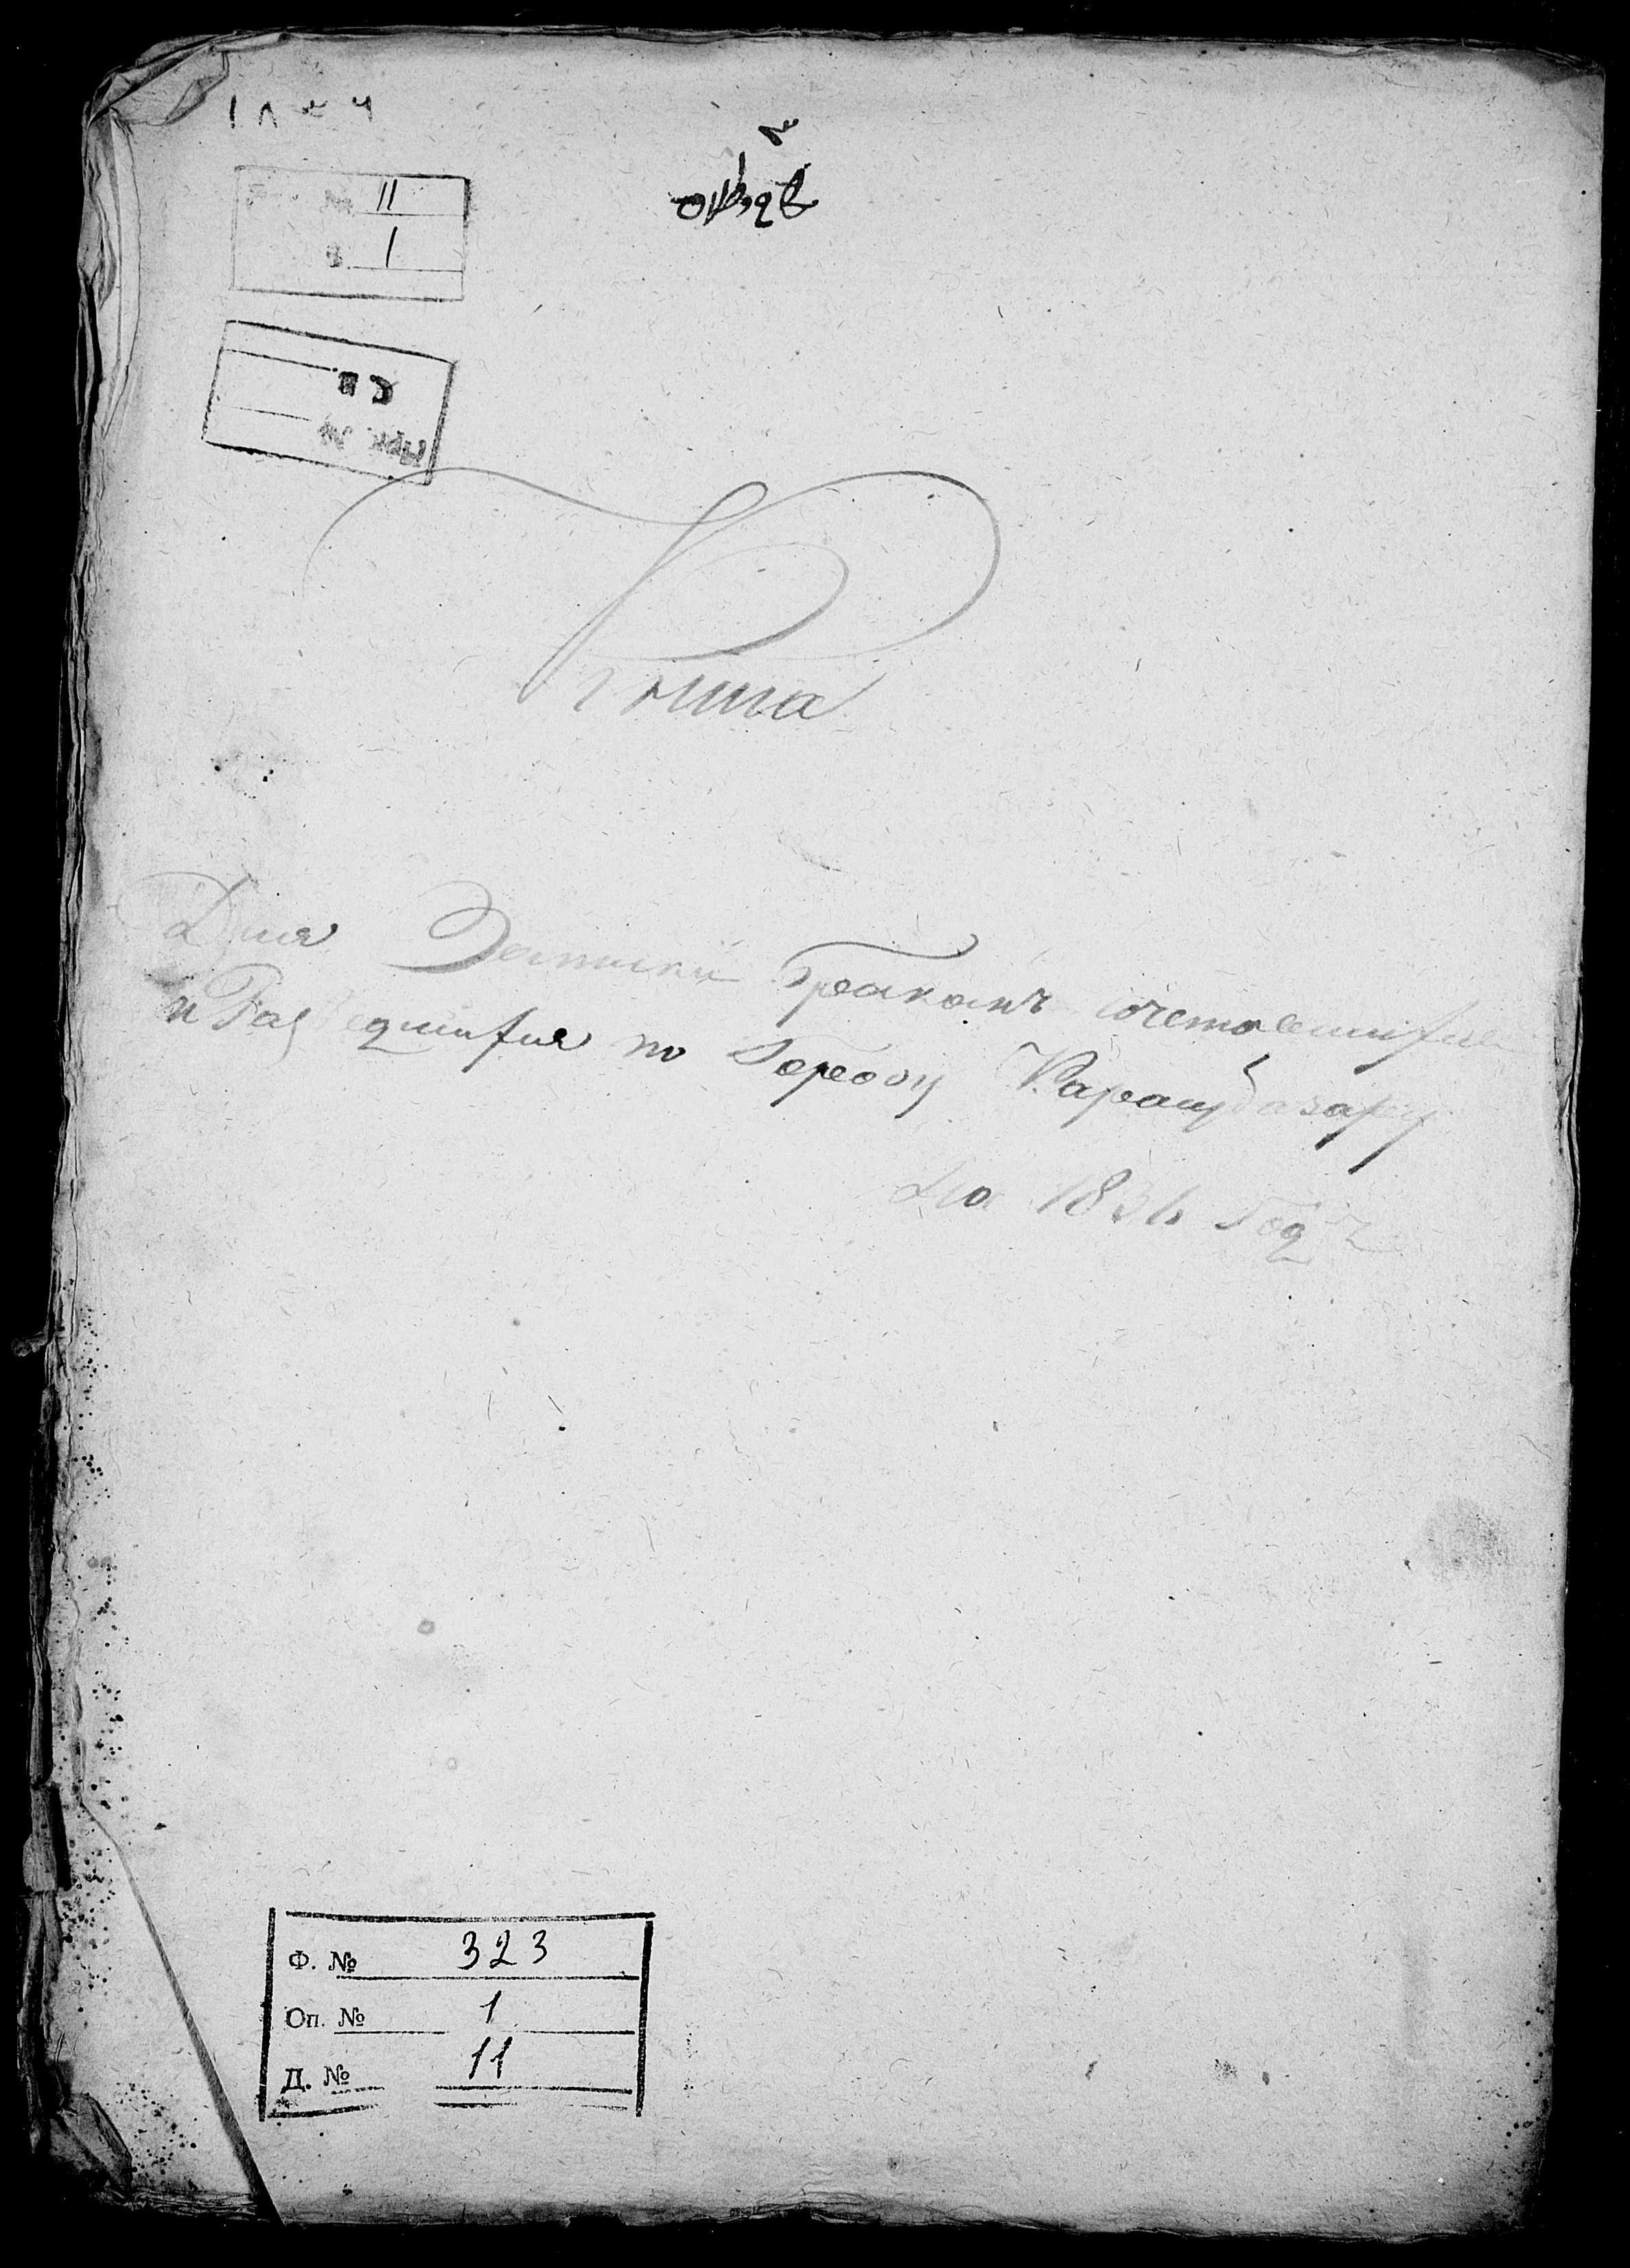 11
1
С В.
Арх. №
Книга
Для Записки бракамъ сочетовшихся
и Разведшихся по Городу Карасубазару
На 1834 Годъ
Ф. № 323
Оп. № 1
Д. № 11